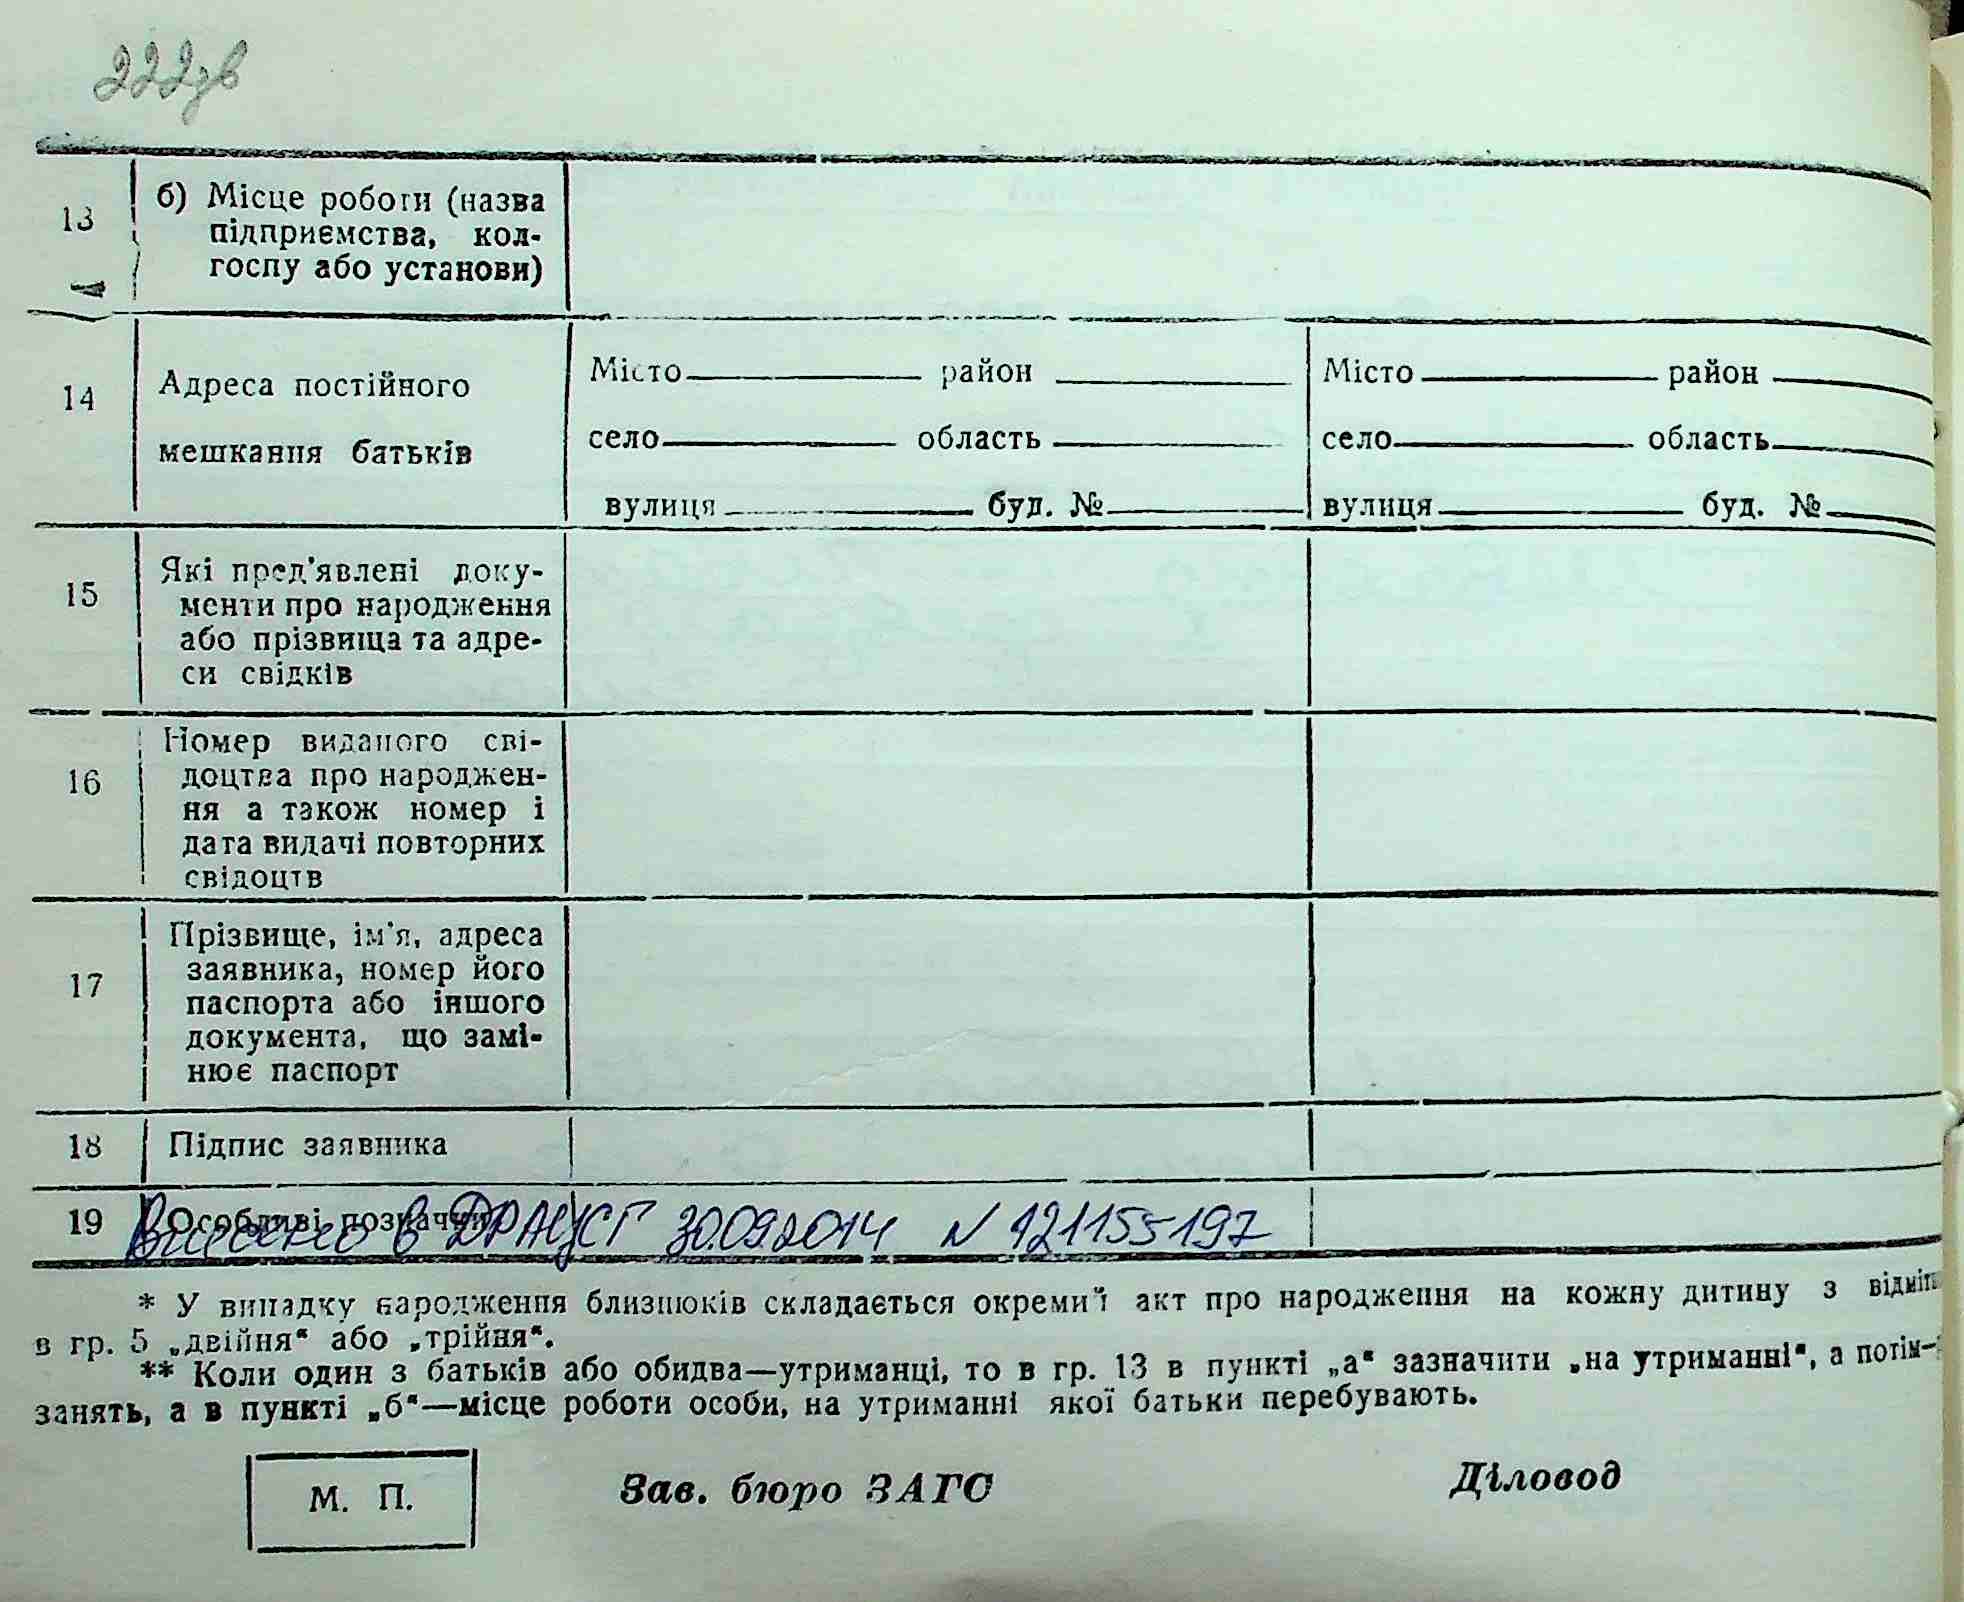 222зв
13 б) Місце роботи (назва
підприємства, кол-
госпу або установи)
14 Адреса постійного
мешкання батьків
Місто район
село область
вулиця буд. №
Місто район
село область
вулиця буд. №
15 Які пред'явлені доку-
менти про народження
або прізвища та адре-
си свідків
16 Номер виданого сві-
доцтва про народжен-
ня а також номер і
дата видачі повторних
свідоцтв
17 Прізвище, ім'я, адреса
заявника, номер його
паспорта або іншого
документа, що замі-
нює паспорт
18 Підпис заявника
19 Особливі позначки
Внесено в ДРАЦСГ 30.09.2014 N 121155197
* У випадку народження близнюків складається окремий акт про народження на кожну дитину з відміт
в гр. 5 „двійня“ або „трійня“.
** Коли один з батьків або обидва—утриманці, то в гр. 13 в пункті „а“ зазначити „на утриманні“, а потім—
занять, а в пункті „б“—місце роботи особи, на утриманні якої батьки перебувають.
М. П. Зав. бюро ЗАГС Діловод